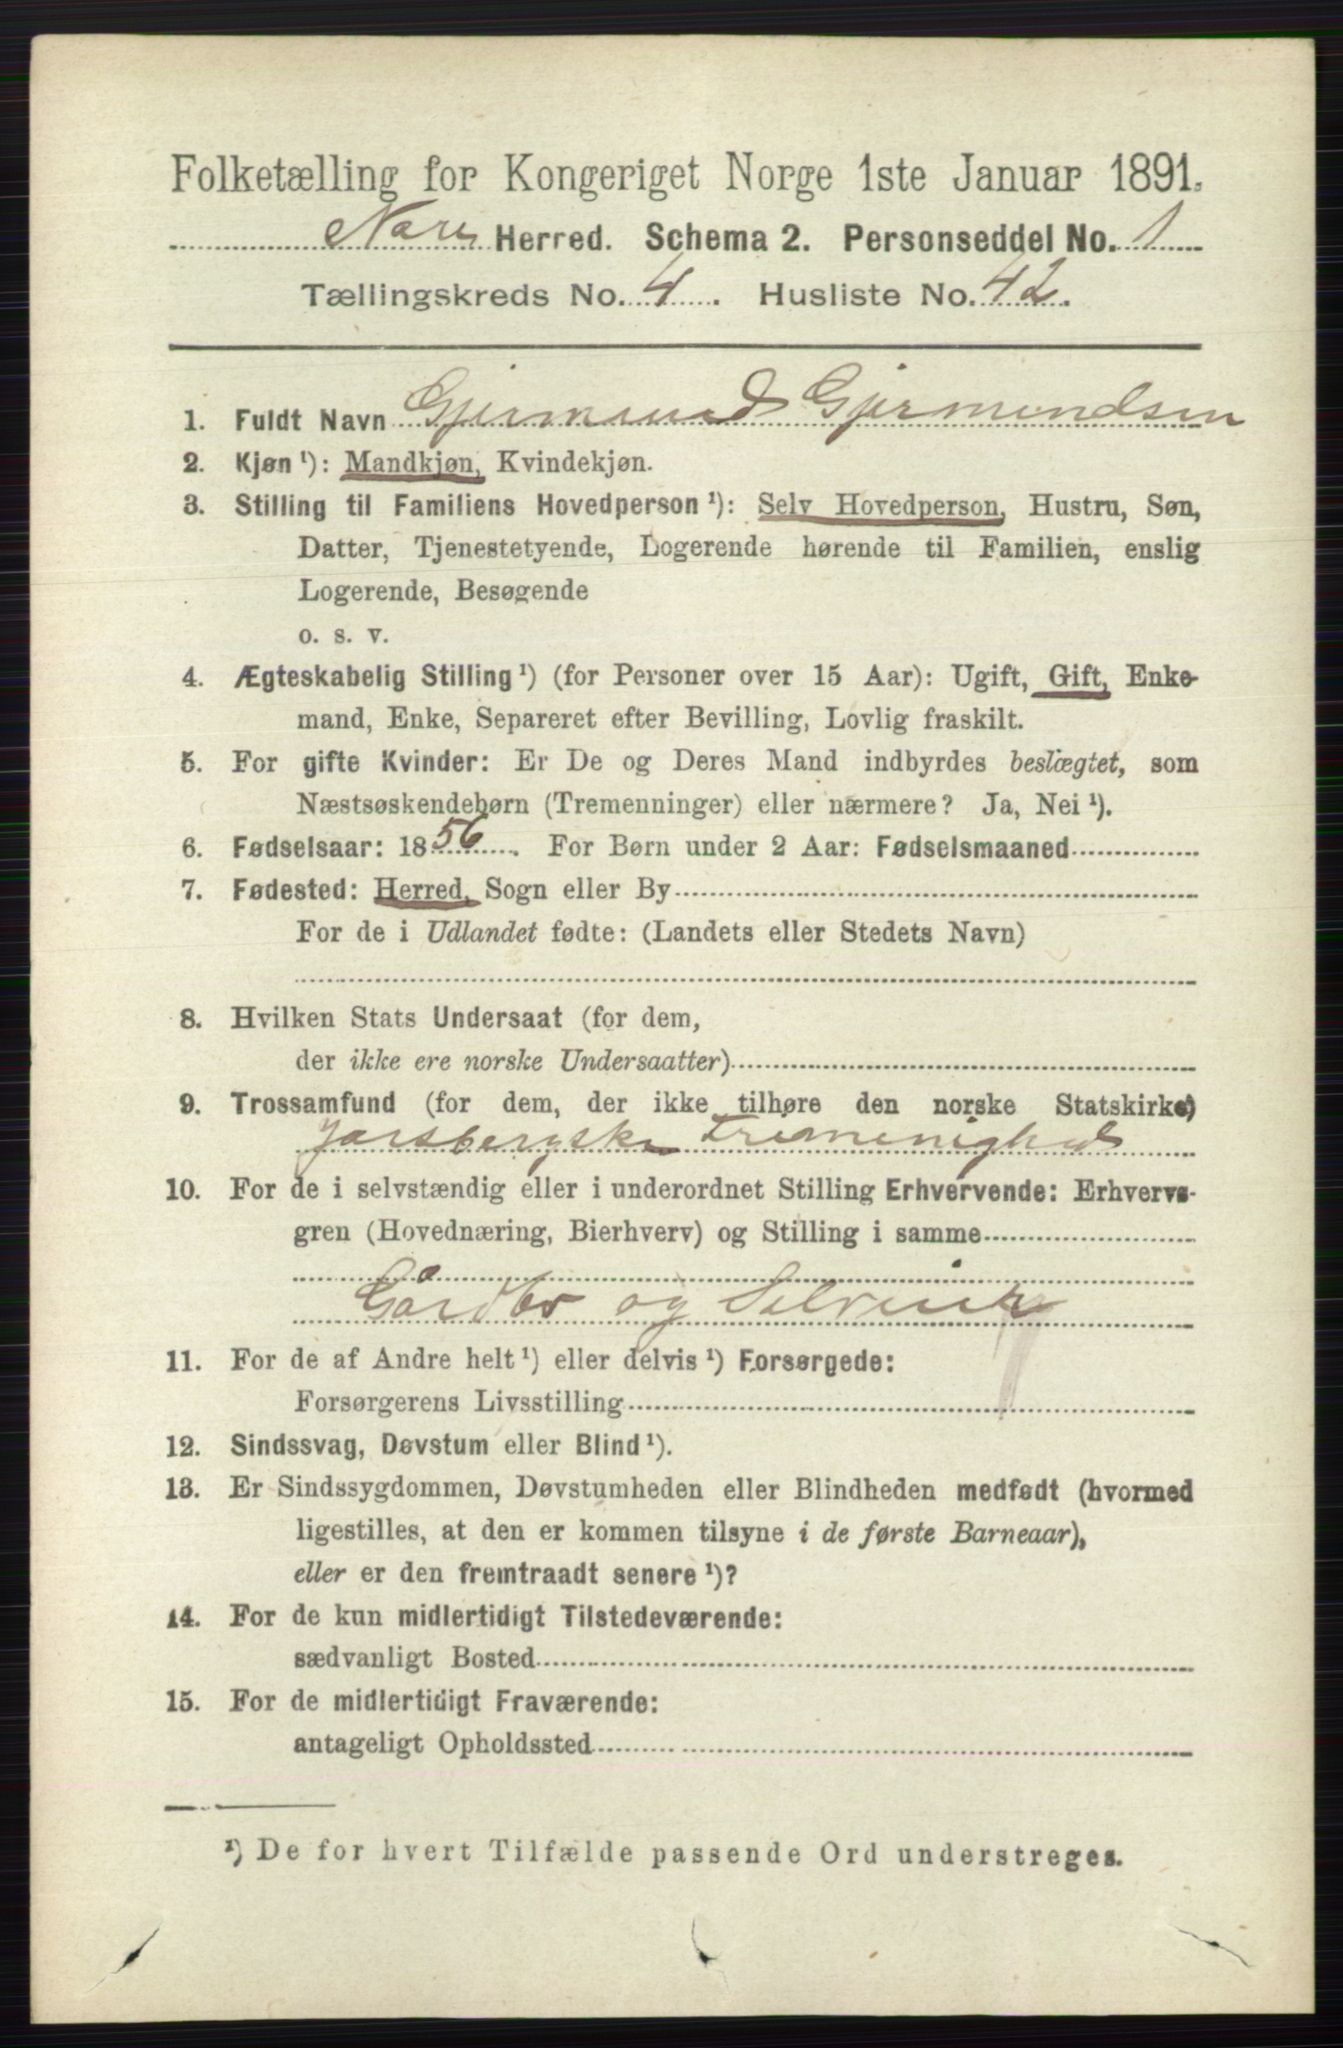 Folketælling for Kongeriget Norge 1ste Januar 1891.
Nore Herred. Schema 2. Personseddel No. 1
Tællingskreds No. 4. Husliste No. 42.
1. Fuldt Navn Gjermund Gjermundsen
2. Kjøn ¹): Mandkjøn, Kvindekjøn.
3. Stilling til Familiens Hovedperson ¹): Selv Hovedperson, Hustru, Søn,
Datter, Tjenestetyende, Logerende hørende til Familien, enslig
Logerende, Besøgende
o. s. v.
4. Ægteskabelig Stilling ¹) (for Personer over 15 Aar): Ugift, Gift, Enke-
mand, Enke, Separeret efter Bevilling, Lovlig fraskilt.
5. For gifte Kvinder: Er De og Deres Mand indbyrdes beslægtet, som
Næstsøskendebørn (Tremenninger) eller nærmere? Ja, Nei ¹).
6. Fødselsaar: 1856. For Børn under 2 Aar: Fødselsmaaned
7. Fødested: Herred, Sogn eller By
For de i Udlandet fødte: (Landets eller Stedets Navn)
8. Hvilken Stats Undersaat (for dem,
der ikke ere norske Undersaatter)
9. Trossamfund (for dem, der ikke tilhøre den norske Statskirke)
Jarsbergske Frimenighed
10. For de i selvstændig eller i underordnet Stilling Erhvervende: Erhvervs-
gren (Hovednæring, Bierhverv) og Stilling i samme
Gårdbr og Selveier
11. For de af Andre helt ¹) eller delvis ¹) Forsørgede:
Forsørgerens Livsstilling
12. Sindssvag, Døvstum eller Blind ¹).
13. Er Sindssygdommen, Døvstumheden eller Blindheden medfødt (hvormed
ligestilles, at den er kommen tilsyne i de første Barneaar),
eller er den fremtraadt senere ¹)?
14. For de kun midlertidigt Tilstedeværende:
sædvanligt Bosted
15. For de midlertidigt Fraværende:
antageligt Opholdssted
¹) De for hvert Tilfælde passende Ord understreges.